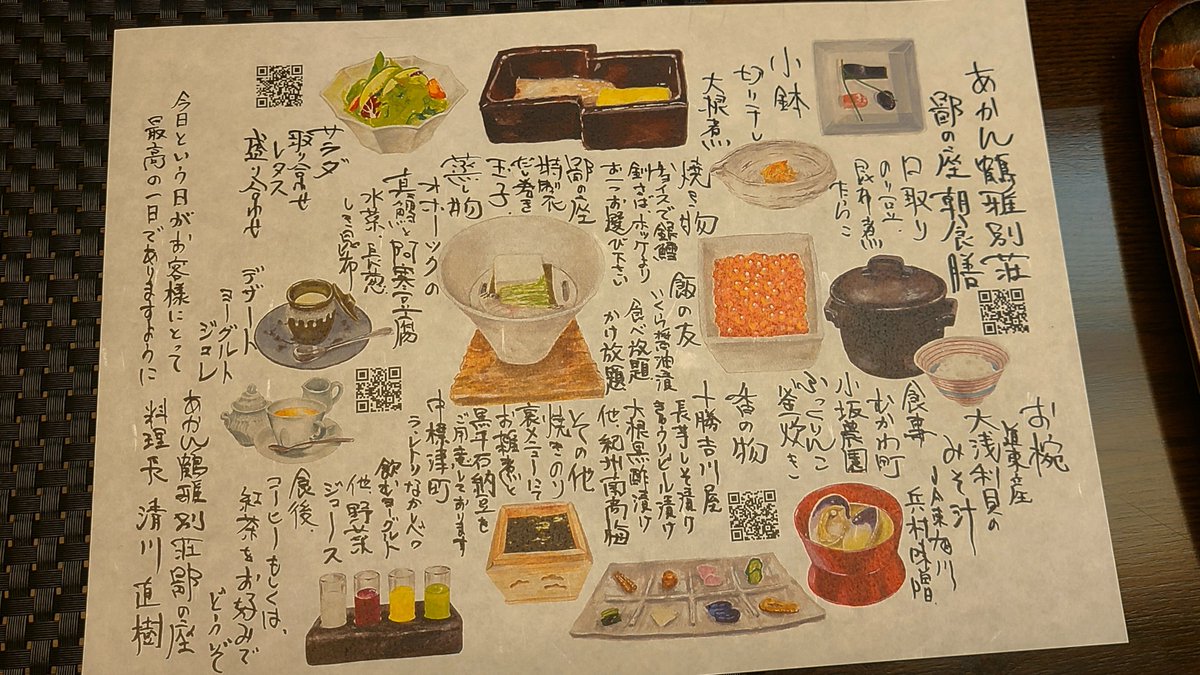 あかん鶴雅別荘
鄙の座 朝食膳
口取り
のり豆
昆布煮
たらこ
小鉢
切り干し
大根煮
焼き物
チョイスで銀鱈
釧さば ホッケより
お一つお選び下さい
鄙の座
特製花
だし巻き
玉子
蒸し物
オホーツクの
真鱈と阿寒豆腐
水菜、長葱
しき昆布
サラダ
取り寄せ
レタス
盛り合わせ
お椀
道東産
大浅利貝の
みそ汁
JA東旭川
兵村味噌
食事
むかわ町
小坂農園
ふっくりんこ
釜炊き
飯の友
いくら醤油漬
食べ放題
かけ放題
香の物
十勝吉川屋
長芋しそ漬け
きゅうりビール漬け
大根黒酢漬け
他、紀州南高梅
その他
焼きのり
裏メニューにて
お雑煮と
黒千石納豆を
ご用意しております
中標津町
ラ・レトリなかしべつ
飲むヨーグルト
他、野菜
ジュース
食後、
コーヒーもしくは、
紅茶をお好みで
どうぞ
デザート
ヨーグルト
ジュレ
今日という日がお客様にとって
最高の一日でありますように
あかん鶴雅別荘鄙の座
料理長 清川 直樹